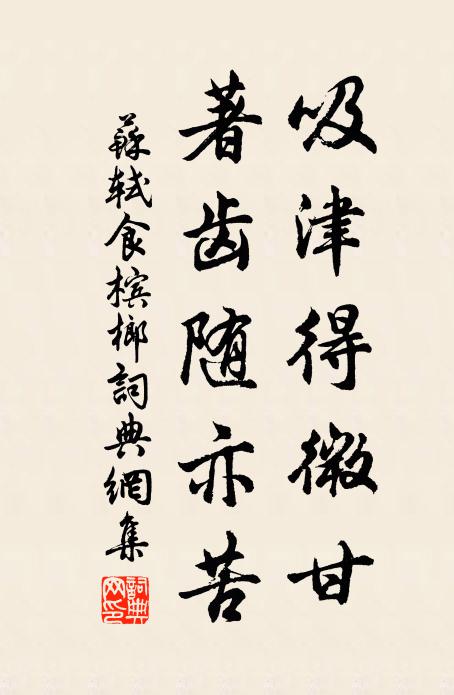 吸津得微甘
著齿随亦苦
蘇軾食槟榔詞典網集
詞典网印